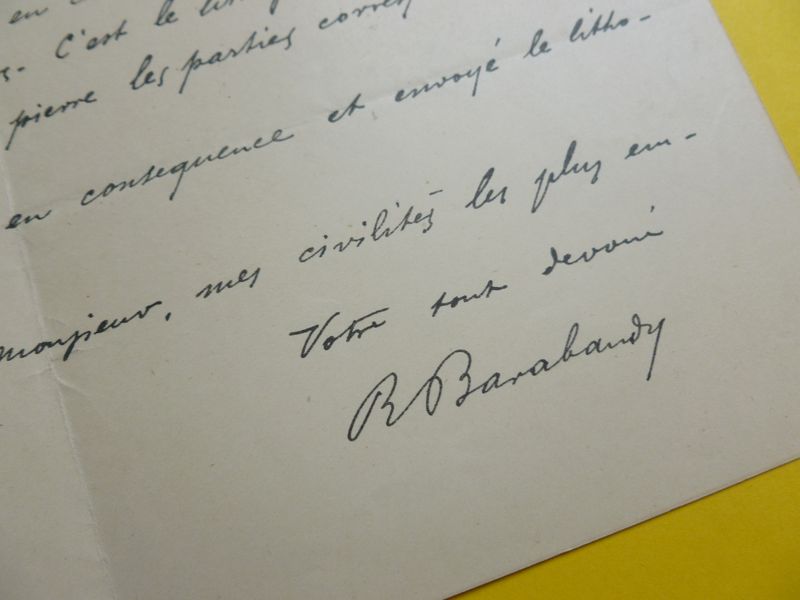 en
s. C'est le
pierre les parties corres
en consequence et envoyé le litho-
monsieur, mes civilités les plus em-
Votre tout devoué
R Barabandy